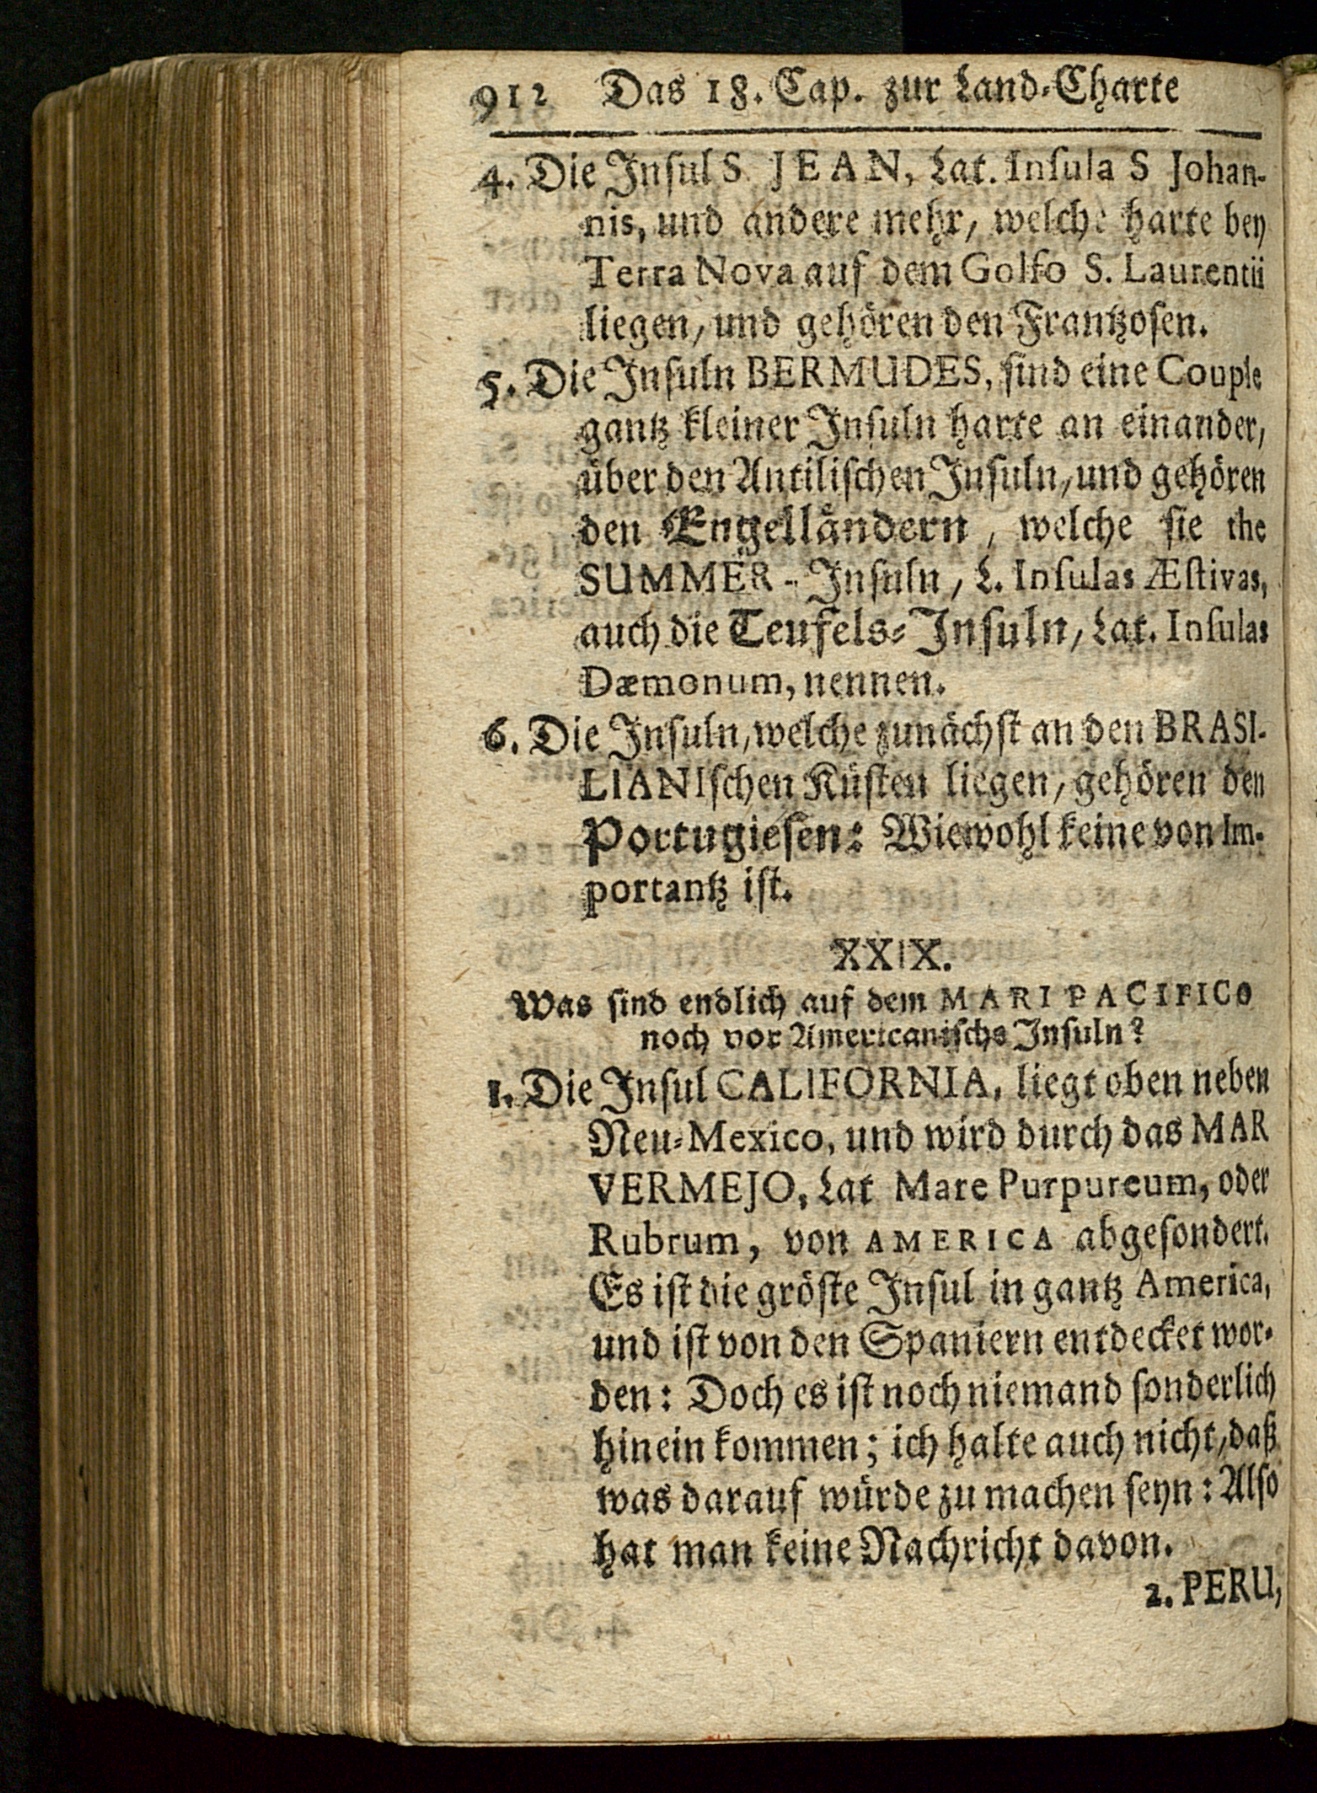 912 Das 18. Cap. zur Land-Charte
4. Die Insul S JEAN, Lat. Insula S Johan-
nis, und andere mehr, welche harte bey
Terra Nova auf dem Golfo S. Laurentii
liegen, und gehören den Frantzosen.
5. Die Insuln BERMUDES, sind eine Couple
gantz kleiner Insuln harte an einander,
über den Antilischen Insuln, und gehören
den Engelländern, welche sie the
SUMMER-Insuln, L. Insulas Æstivas,
auch die Teufels-Insuln, Lat. Insulas
Dæmonum, nennen.
6. Die Insuln, welche zunächst an den BRASI-
LIANIschen Küsten liegen, gehören den
Portugiesen: Wiewohl keine von Im-
portantz ist.
XXIX.
Was sind endlich auf dem MARI PACIFICO
noch vor Americanische Insuln?
1. Die Insul CALIFORNIA, liegt oben neben
Neu-Mexico, und wird durch das MAR
VERMEJO, Lat Mare Purpureum, oder
Rubrum, von AMERICA abgesondert.
Es ist die gröste Insul in gantz America,
und ist von den Spaniern entdecket wor-
den: Doch es ist noch niemand sonderlich
hinein kommen; ich halte auch nicht, daß
was darauf würde zu machen seyn: Also
hat man keine Nachricht davon.
2. PERU,